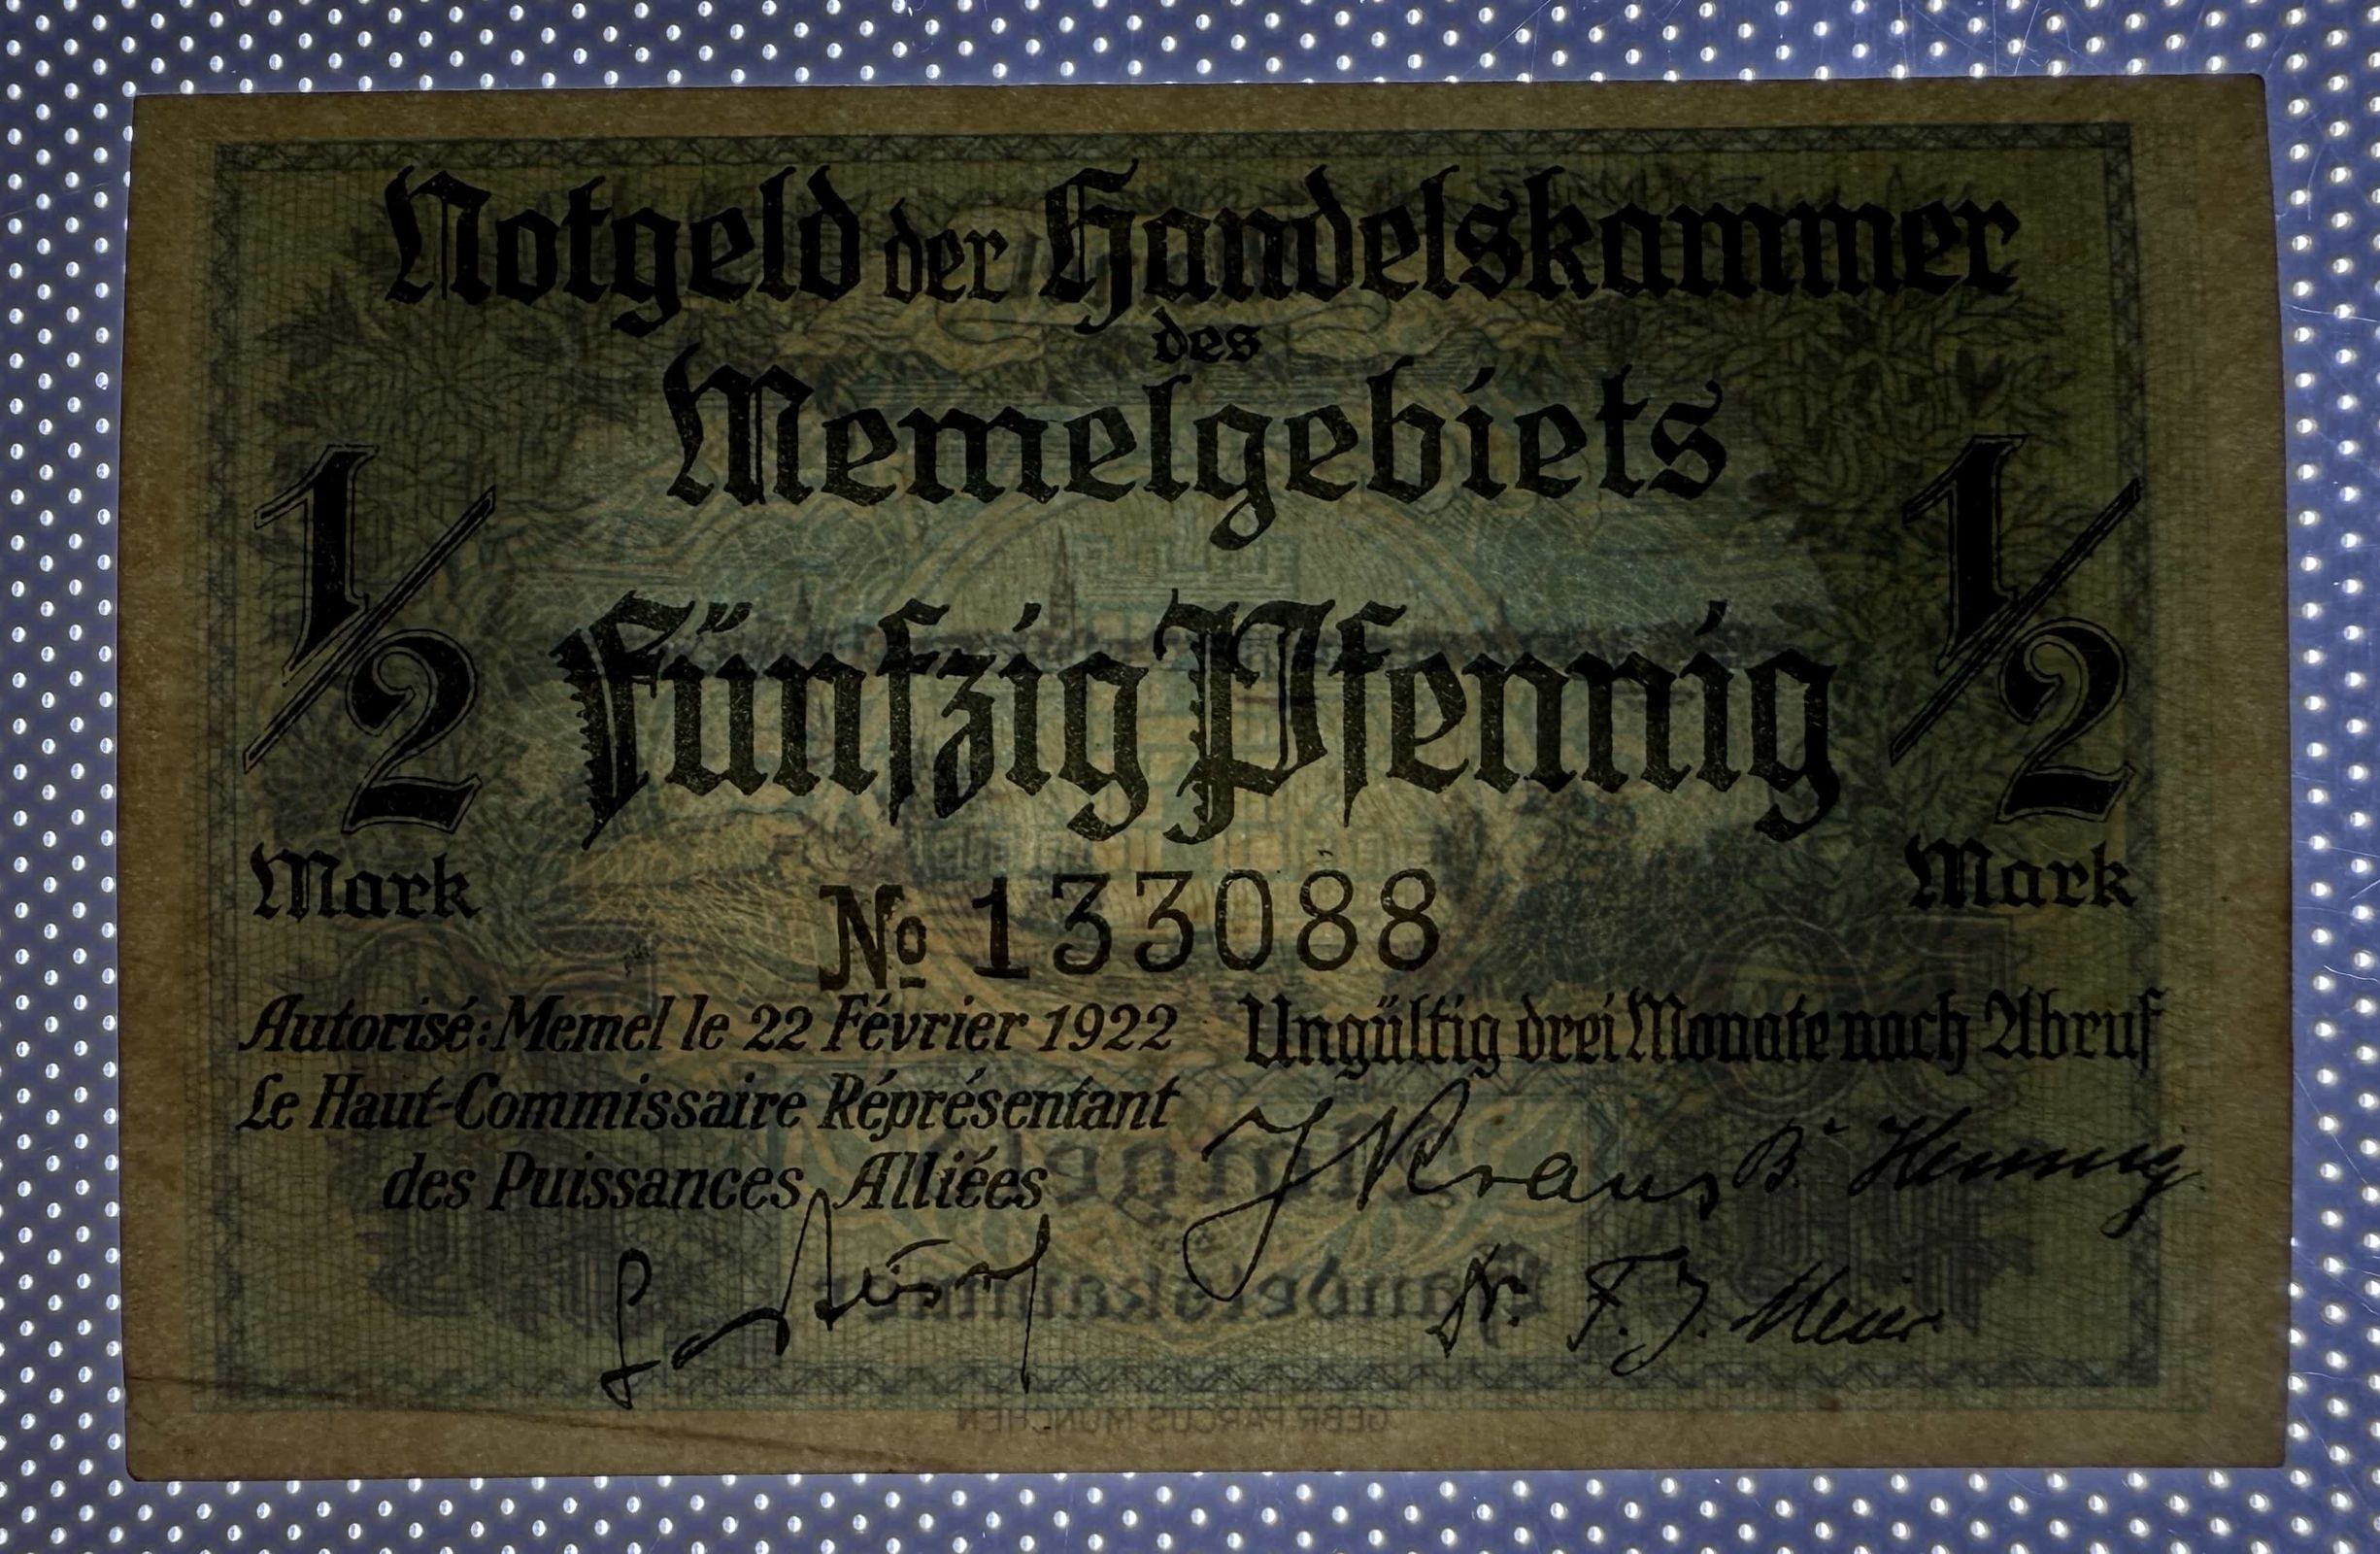 Notgeld der Handelskammer
des
Memelgebiets
1/2
Fünfzig Pfennig
1/2
Mark
Mark
No 133088
Autorisé: Memel le 22 Février 1922
Le Haut-Commissaire Réprésentant
des Puissances Alliées
Ungültig drei Monate nach Abruf
J Kraus
Dr. F. J. Meier
GEBR. PARCUS MÜNCHEN